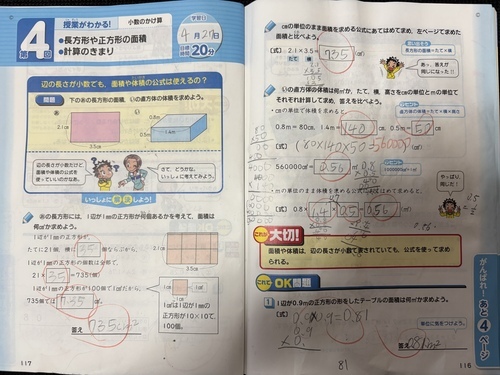 授業がわかる!
小数のかけ算
第4回
●長方形や正方形の面積
●計算のきまり
学習日
4月29日
目標時間
20分
辺の長さが小数でも、面積や体積の公式は使えるの?
問題
下のあの長方形の面積、いの直方体の体積を求めよう。
2.1cm
3.5cm
0.5m
1.4m
辺の長さが小数だけど、
面積や体積の公式を
使っていいのかなあ。
さて、どうかな。
いっしょに考えてみよう。
いっしょに解決しよう!
あの長方形には、1辺が1mmの正方形が何個あるかを考えて、面積は
何cm²か求めよう。
1辺が1mmの正方形は、
たてに21個、横に35個ならぶから、
1辺が1mmの正方形の個数は全部で、
21×35=735(個)
1辺が1mmの正方形が100個で1cm²だから、
735個では7.35cm²
答え 7.35cm²
2.1cm
3.5cm
1cm
1cm²は1辺が1mm
の正方形が10×10で、
100個。
117
cmの単位のまま面積を求める公式にあてはめて求め、左ページで求めた
面積と比べよう。
(式) 2.1×3.5=7.35(cm²)
たて 横
長方形の面積=たて×横
あっ、答えが
同じになった!!
いの直方体の体積は何m³か、たて、横、高さをcmの単位とmの単位で
それぞれ計算して求め、答えを比べよう。
・cmの単位で体積を求めると、
直方体の体積=たて×横×高さ
0.8m=80cm、1.4m=140cm、0.5m=50cm
(式) 80×140×50=560000
560000cm³=0.56m³
・mの単位のまま体積を求める公式にあてはめて求めると、
(式) 0.8×1.4×0.5=0.56(m³)
やっぱり、
同じだ!
これが大切!
面積や体積は、辺の長さが小数で表されていても、公式を使って求め
られる。
これでOK問題
1 1辺が0.9mの正方形の形をしたテーブルの面積は何m²か求めよう。
(式) 0.9×0.9=0.81
単位に気をつけよう。
答え 0.81m²
がんばれ!あと4ページ
81
116